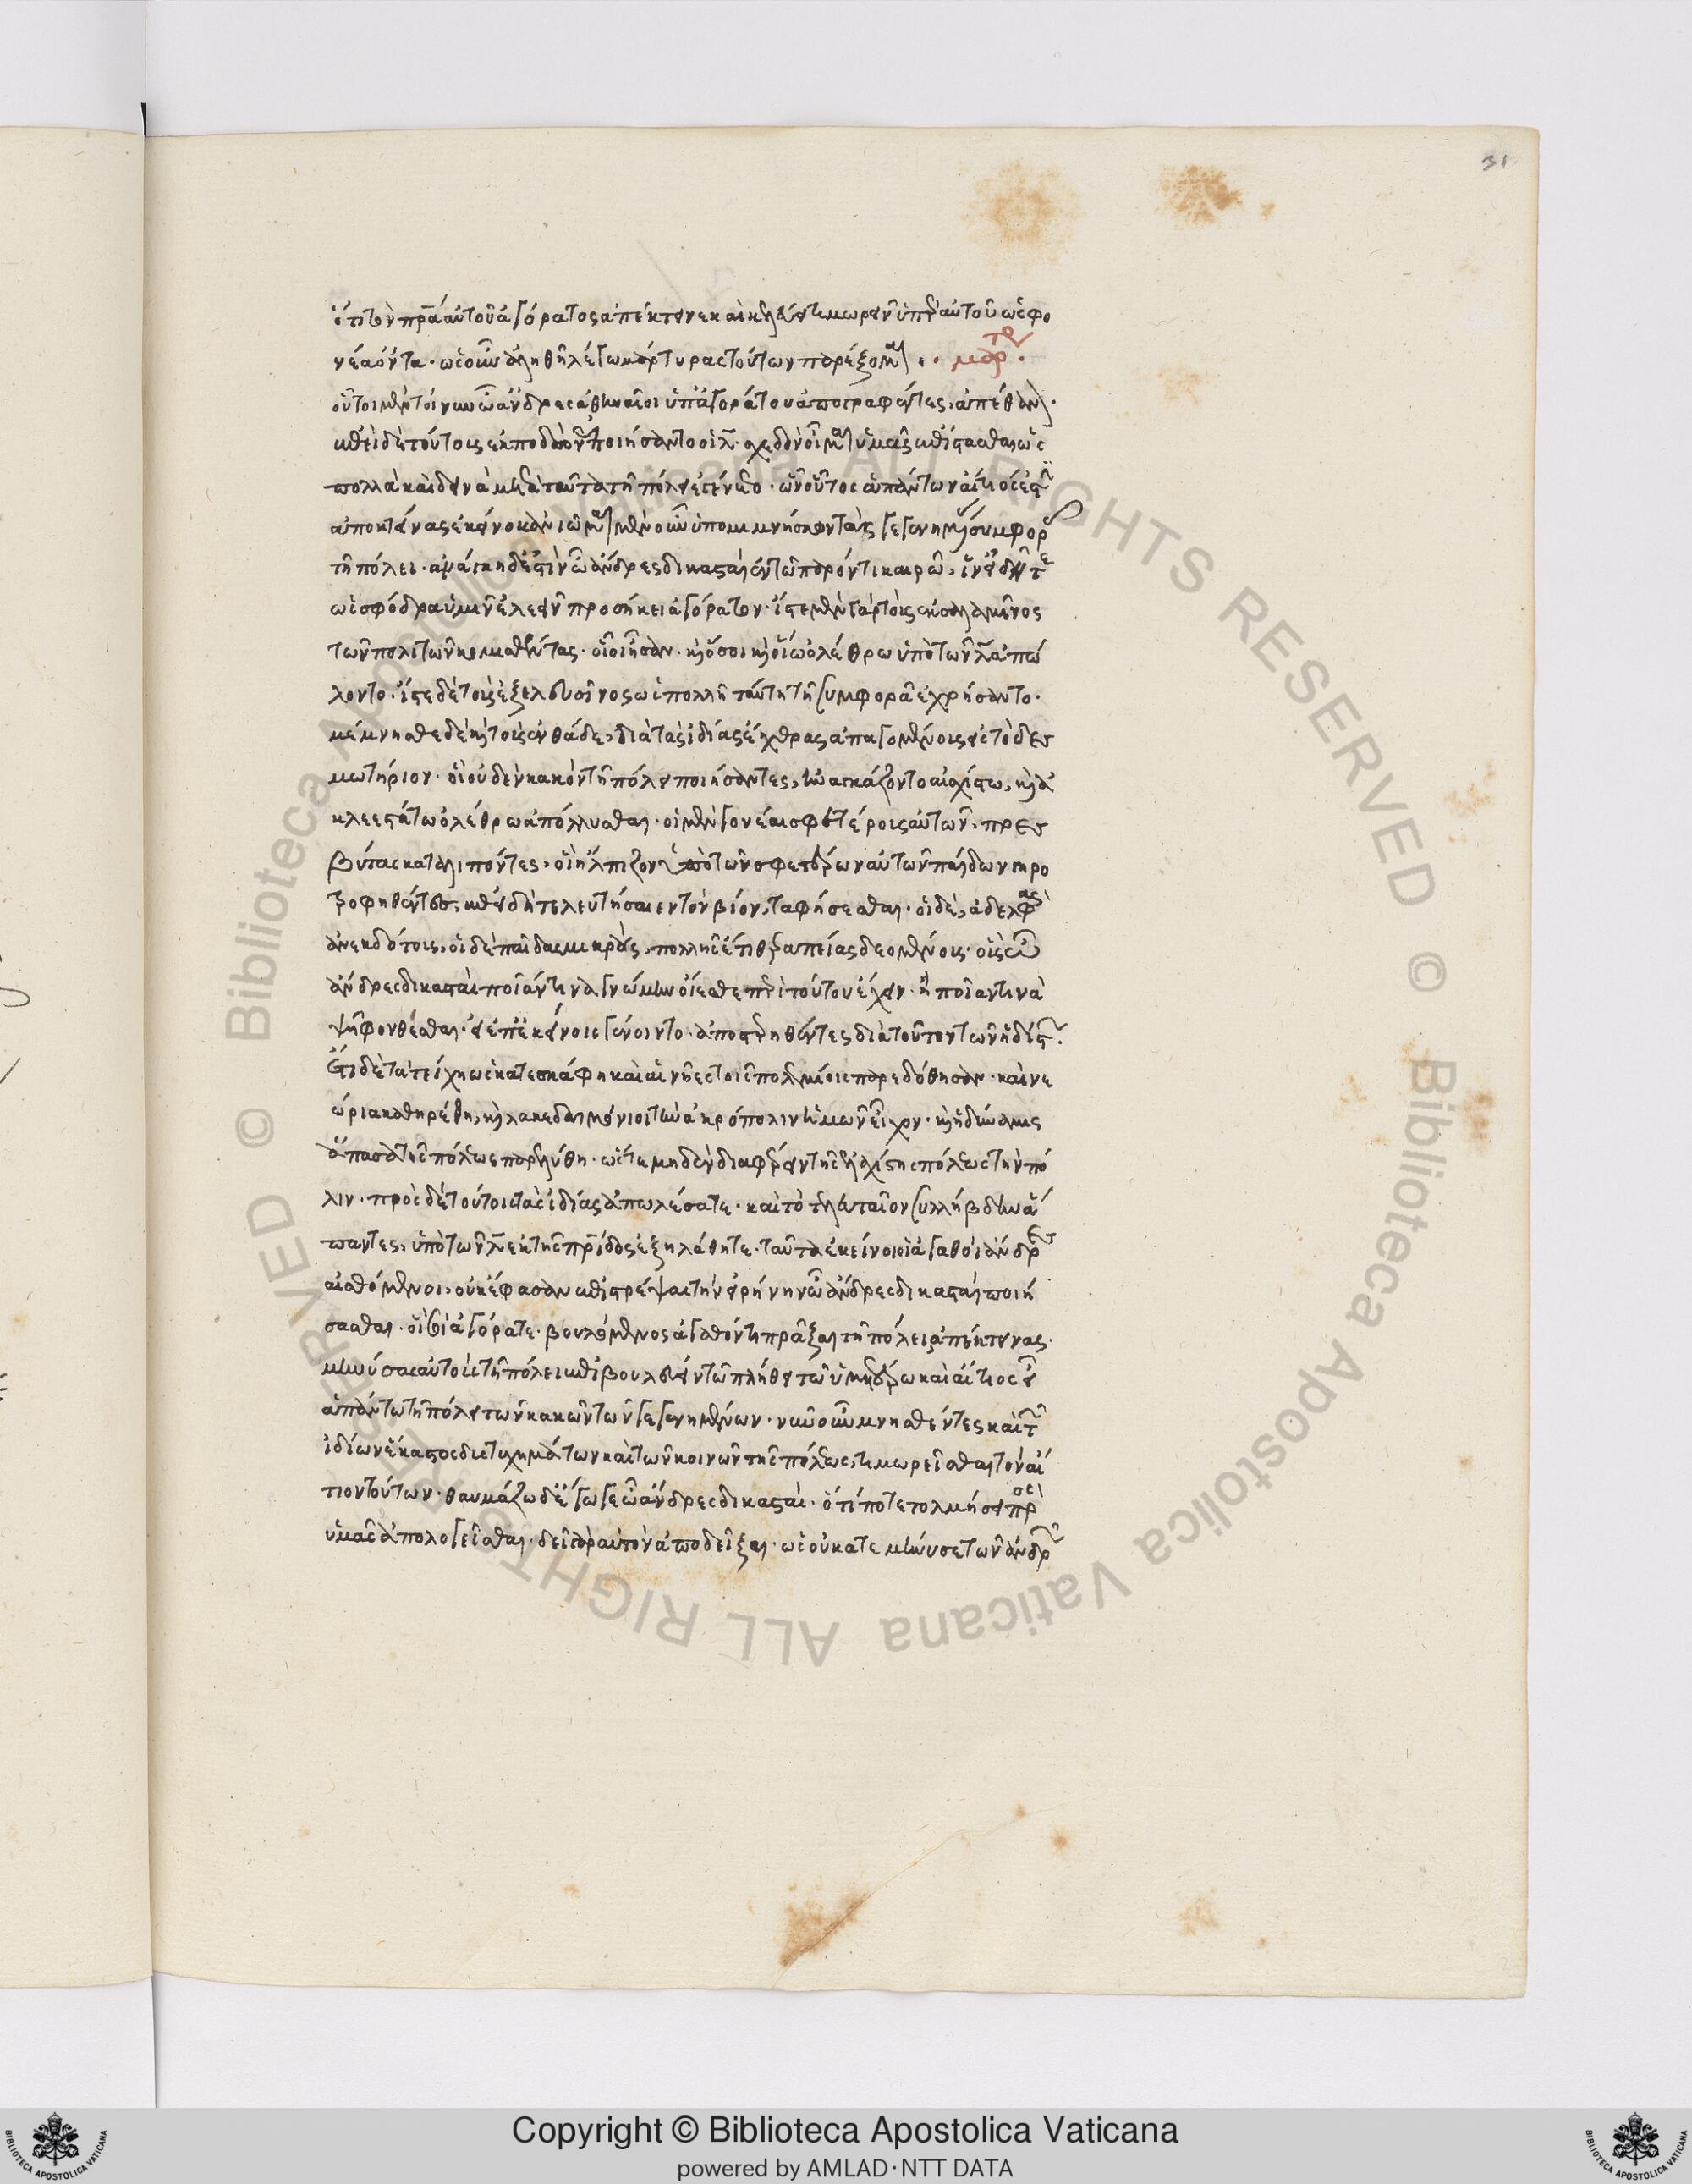 ὅτι τὸν πρ̅α αὐτοῦ ἀγόρατος ἀπέκτεινε καὶ κελεύει τιμωρεῖν ὑπὲρ αὐτοῦ ὡς φο
νέα ὄντα · ὡς οὖν ἀληθῆ λέγω μάρτυρας τούτων παρέξομαι · · μαρτυρ ·
οὗτοι μὲν τοίνυν ὦ ἄνδρες ἀθηναῖοι ὑπ' ἀγοράτου ἀπογραφέντες, ἀπέθαν ·
ἐπεὶ δὲ τούτοις ἐκποδὼν ἐποιήσαντο οἱ λ̅ · σχεδὸν οἶμαι ὑμᾶς ἐπίστασθαι ὡς
πολλὰ καὶ δεινὰ μετὰ ταῦτα τῇ πόλει ἐγένετο · ὧν οὗτος ἁπάντων αἴτιός ἐστιν
ἀποκτείνας ἐκείνους ἀνιῶμαι μὲν οὖν ὑπομιμνήσκων τὰς γεγενημένας συμφορὰς
τῇ πόλει · ἀνάγκη δ' ἐστὶν ὦ ἄνδρες δικασταὶ ἐν τῷ παρόντι καιρῷ, ἵν' εἰδῆτε
ὡς σφόδρα ὑμῖν ἐλεεῖν προσήκει ἀγόρατον · ἴστε μὲν γὰρ τοὺς ἐκ σαλαμῖνος
τῶν πολιτῶν κομισθέντας · οἷοι ἦσαν · καὶ ὅσοι καὶ οἵῳ ὀλέθρῳ ὑπὸ τῶν λ̅ ἀπώ
λοντο · ἴστε δὲ τοὺς ἐξ ἐλευσῖνος ὡς πολλῇ ταύτῃ τῇ συμφορᾷ ἐχρήσαντο ·
μέμνησθε δὲ καὶ τοὺς ἐνθάδε, διὰ τὰς ἰδίας ἔχθρας ἀπαγομένους εἰς τὸ δεσ
μωτήριον · οἳ οὐδὲν κακὸν τῇ πόλει ποιήσαντες, ἠναγκάζοντο αἰσχίστῳ, καὶ ἀ
κλεεστάτῳ ὀλέθρῳ ἀπόλλυσθαι · οἱ μὲν γονέας σφετέρους αὐτῶν, πρεσ
βύτας καταλιπόντες, οἳ ἤλπιζον ὑπὸ τῶν σφετέρων αὐτῶν παίδων γηρο
τροφηθέντες, ἐπειδὴ τελευτήσαιεν τὸν βίον, ταφήσεσθαι · οἱ δὲ, ἀδελφὰς
ἀνεκδότους, οἱ δὲ παῖδας μικρὰς, πολλῆς ἔτι θεραπείας δεομένους · οἷς ὦ
ἄνδρες δικασταὶ ποίαν τινὰ γνώμην οἴεσθε περὶ τούτου ἔχειν · ἢ ποίαν τινὰ
ψῆφον θέσθαι · εἰ ἐπ' ἐκείνοις γένοιντο · ἀποστερηθέντες διὰ τοῦτον τῶν ἡδίστ.
ἔτι δὲ τὰ τείχη ὡς κατεσκάφη καὶ αἱ νῆες τοῖς πολεμίοις παρεδόθησαν · καὶ νε
ώρια καθηρέθη, καὶ λακεδαιμόνιοι τὴν ἀκρόπολιν ἡμῶν εἶχον · καὶ ἡ δύναμις
ἅπασα τῆς πόλεως παρελύθη · ὥστε μηδὲν διαφέρειν τῆς ἐλαχίστης πόλεως τὴν πό
λιν · πρὸς δὲ τούτοις τὰς ἰδίας ἀπωλέσατε · καὶ τὸ τελευταῖον συλλήβδην ἅ
παντες, ὑπὸ τῶν λ̅ ἐκ τῆς πρ̅ίδος ἐξηλάθητε · ταῦτα ἐκεῖνοι οἱ ἀγαθοὶ ἄνδρες
αἰσθόμενοι, οὐκ ἔφασαν ἐπιτρέψαι τὴν εἰρήνην ὦ ἄνδρες δικασταὶ ποιή
σασθαι · οὓς σὺ ἀγόρατε · βουλομένους ἀγαθόν τι πρᾶξαι τῇ πόλει ἀπέκτεινας ·
μηνύσας αὐτοὺς τῇ πόλει ἐπιβουλεύειν τῷ πλήθει τῷ ὑμετέρῳ καὶ αἴτιος εἶ
ἁπάντων τῇ πόλει τῶν κακῶν τῶν γεγενημένων · νῦν οὖν μνησθέντες καὶ τῶν
ἰδίων ἕκαστος δυστυχημάτων καὶ τῶν κοινῶν τῆς πόλεως, τιμωρεῖσθαι τὸν αἴ
τιον τούτων · θαυμάζω δ' ἔγωγε ὦ ἄνδρες δικασταὶ · ὅ τί ποτε τολμήσει πρὸς
ὑμᾶς ἀπολογεῖσθαι · δεῖ γὰρ αὐτὸν ἀποδεῖξαι · ὡς οὐ κατεμήνυσε τῶν ἀνδρῶν
31
Copyright © Biblioteca Apostolica Vaticana
powered by AMLAD·NTT DATA
© Biblioteca Apostolica Vaticana ALL RIGHTS RESERVED © Biblioteca Apostolica Vaticana ALL RIGHTS RESERVED
BIBLIOTECA APOSTOLICA VATICANA
BIBLIOTECA APOSTOLICA VATICANA